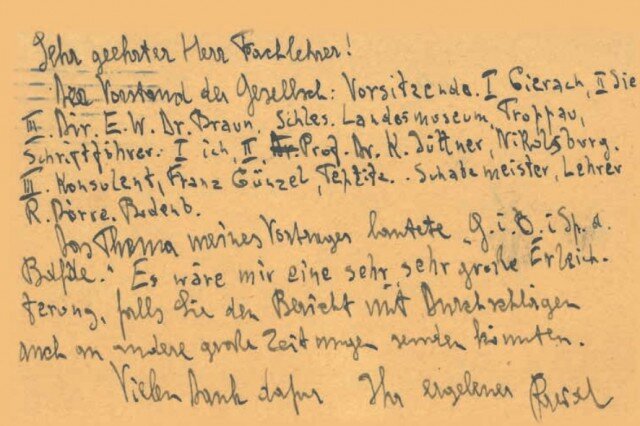 Sehr geehrter Herr Fachlehrer!
Der Vorstand der Gesellsch: Vorsitzende. I Gierach, II Sie
III. Dir. E. W. Dr. Braun, Schles. Landesmuseum, Troppau,
Schriftführer: I ich, II, Prof. Dr. K. Jüttner, Nikolsburg.
III. Konsulent, Franz Günzel, Teplitz. Schatzmeister, Lehrer
R. Dörre, Bodenb.
Das Thema meines Vortrages lautete "G. i. B. i Sp. d.
Es wäre mir eine sehr, sehr große Erleich-
terung, falls Sie den Bericht mit Durchschlägen
auch an andere große Zeitungen senden könnten.
Vielen Dank dafür Ihr ergebener